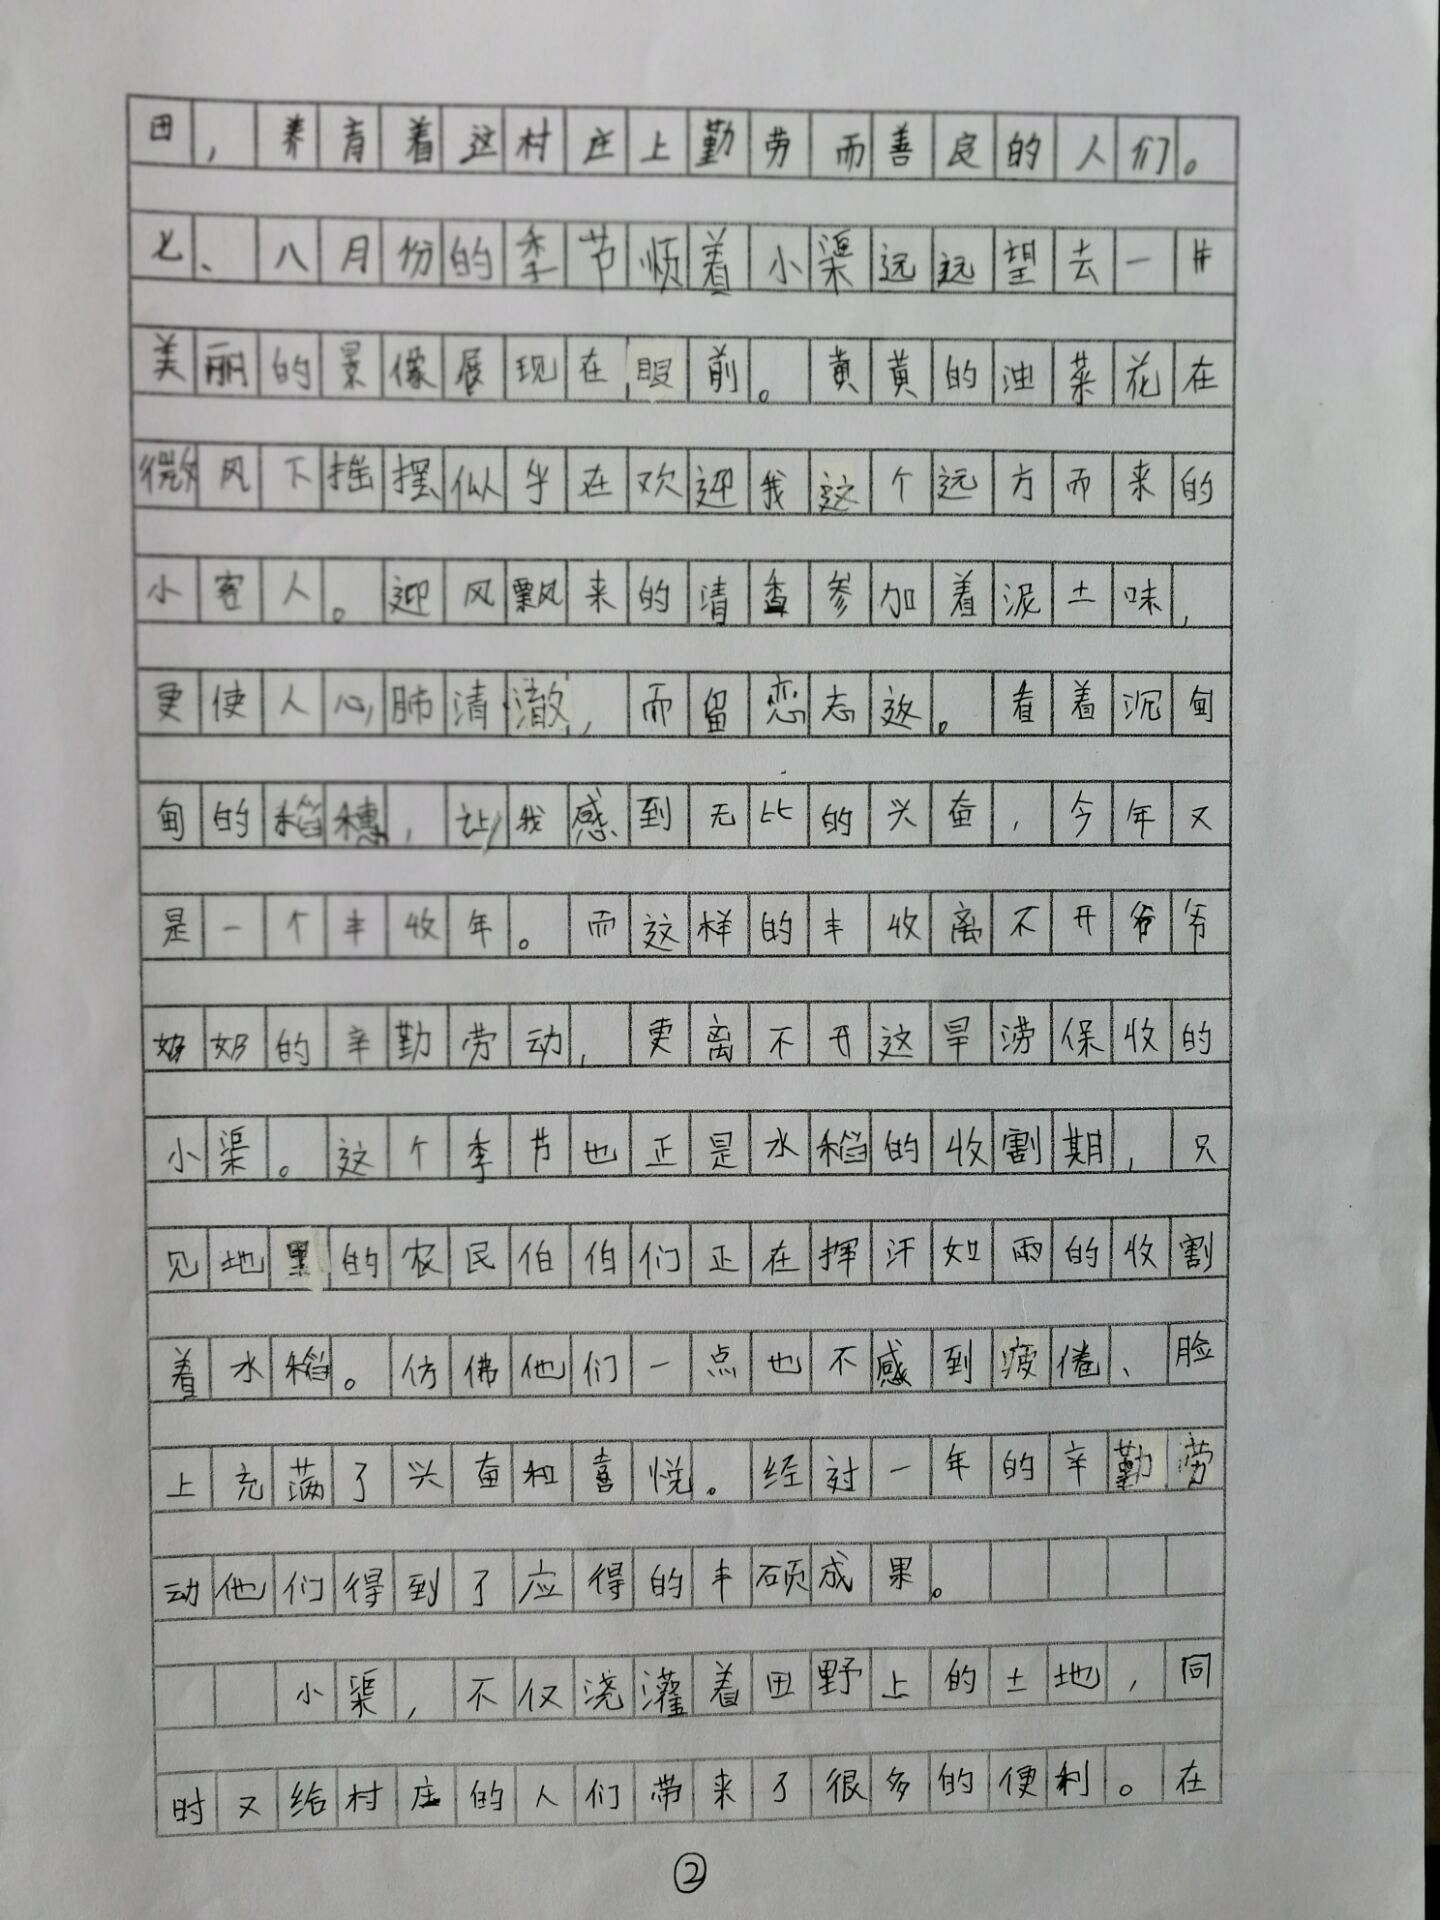 田，养育着这村庄上勤劳而善良的人们。
七、八月份的季节顺着小渠远远望去一片
美丽的景像展现在眼前。黄黄的油菜花在
微风下摇摆似乎在欢迎我这个远方而来的
小客人。迎风飘来的清香参加着泥土味，
更使人心肺清澈，而留恋志返。看着沉甸
甸的稻穗，让我感到无比的兴奋，今年又
是一个丰收年。而这样的丰收离不开爷爷
奶奶的辛勤劳动，更离不开这旱涝保收的
小渠。这个季节也正是水稻的收割期，只
见地里的农民伯伯们正在挥汗如雨的收割
着水稻。仿佛他们一点也不感到疲倦、脸
上充满了兴奋和喜悦。经过一年的辛勤劳
动他们得到了应得的丰硕成果。
小渠，不仅浇灌着田野上的土地，同
时又给村庄的人们带来了很多的便利。在
②